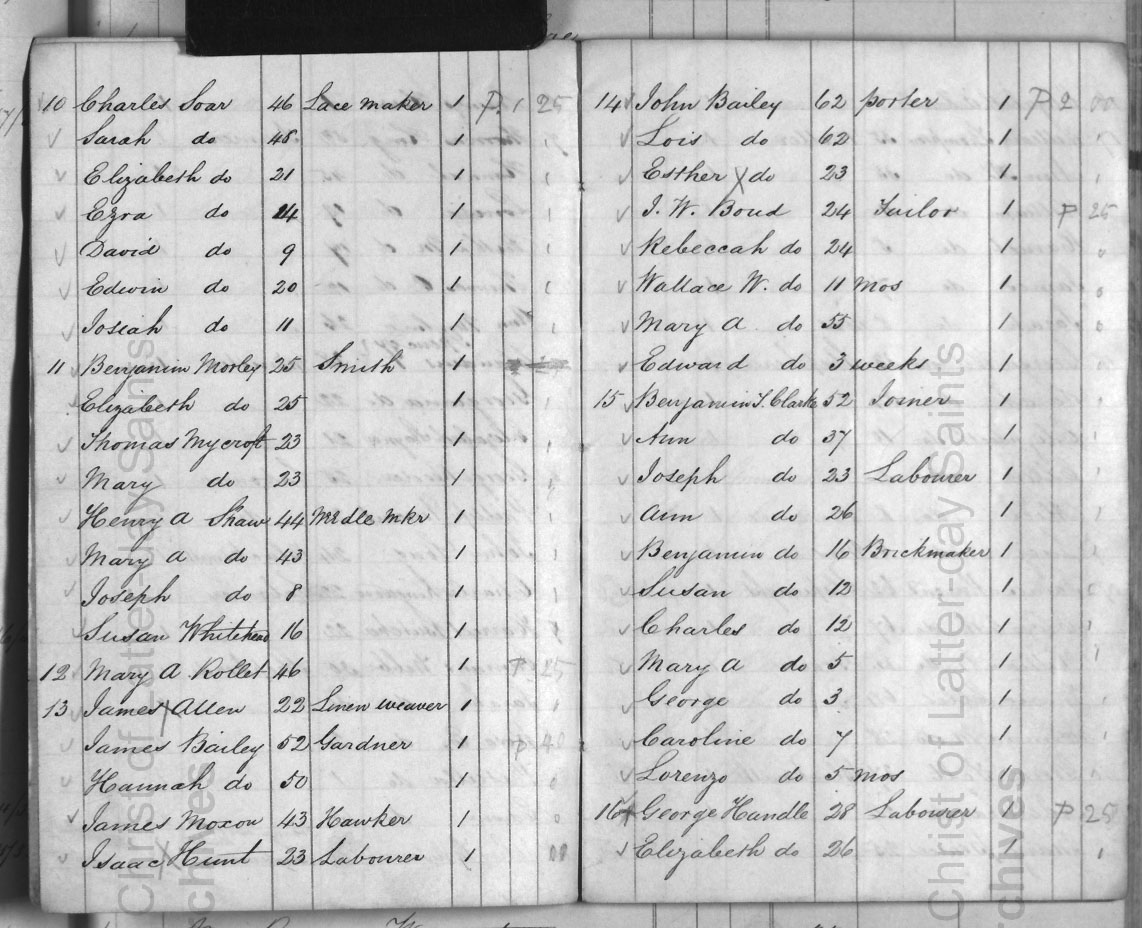 10 Charles Soar 46 Lace maker 1 P. 1 25
Sarah do 48 1
Elizabeth do 21 1
Ezra do 14 1
David do 9 1
Edwin do 20 1
Josiah do 11 1
11 Benjamin Morley 25 Smith 1
Elizabeth do 25 1
Thomas Mycroft 23 1
Mary do 23 1
Henry A Shaw 44 Nedle mkr 1
Mary A do 43 1
Joseph do 8 1
Susan Whitehead 16 1
12 Mary A Rollet 46 1 P 25
13 James Allen 22 Linen weaver 1
James Bailey 52 Gardner 1 P 40
Hannah do 50 1
James Moxon 43 Hawker 1
Isaac Hunt 23 Labourer 1
14 John Bailey 62 porter 1 P 2 00
Lois do 62 1
Esther do 23 1
J. W. Boud 24 Tailor 1 P 25
Rebeccah do 24 1
Wallace W. do 11 mos 1
Mary A do 55 1
Edward do 3 weeks 1
15 Benjamin T. Clarke 52 Joiner 1
Ann do 37 1
Joseph do 23 Labourer 1
Ann do 26 1
Benjamin do 16 Brickmaker 1
Susan do 12 1
Charles do 12 1
Mary A do 5 1
George do 3 1
Caroline do 7 1
Lorenzo do 5 mos 1
16 George Handle 28 Labourer 1 P 25
Elizabeth do 26 1
Christ of Latter-day Saints
chives
Christ of Latter-day Saints
rchives